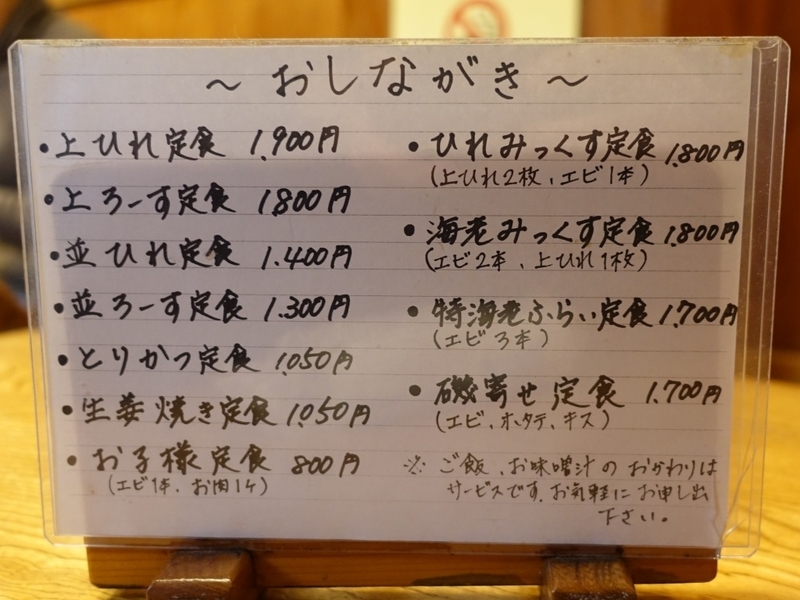 ～おしながき～
・上ひれ定食 1,900円
・上ろーす定食 1,800円
・並ひれ定食 1,400円
・並ろーす定食 1,300円
・とりかつ定食 1,050円
・生姜焼き定食 1,050円
・お子様定食 800円
(エビ1本、お肉1ケ)
・ひれみっくす定食 1,800円
(上ひれ2枚、エビ1本)
・海老みっくす定食 1,800円
(エビ2本、上ひれ1枚)
・特海老ふらい定食 1,700円
(エビ3本)
・磯寄せ定食 1,700円
(エビ、ホタテ、キス)
※ご飯、お味噌汁のおかわりは
サービスです。お気軽にお申し出
下さい。